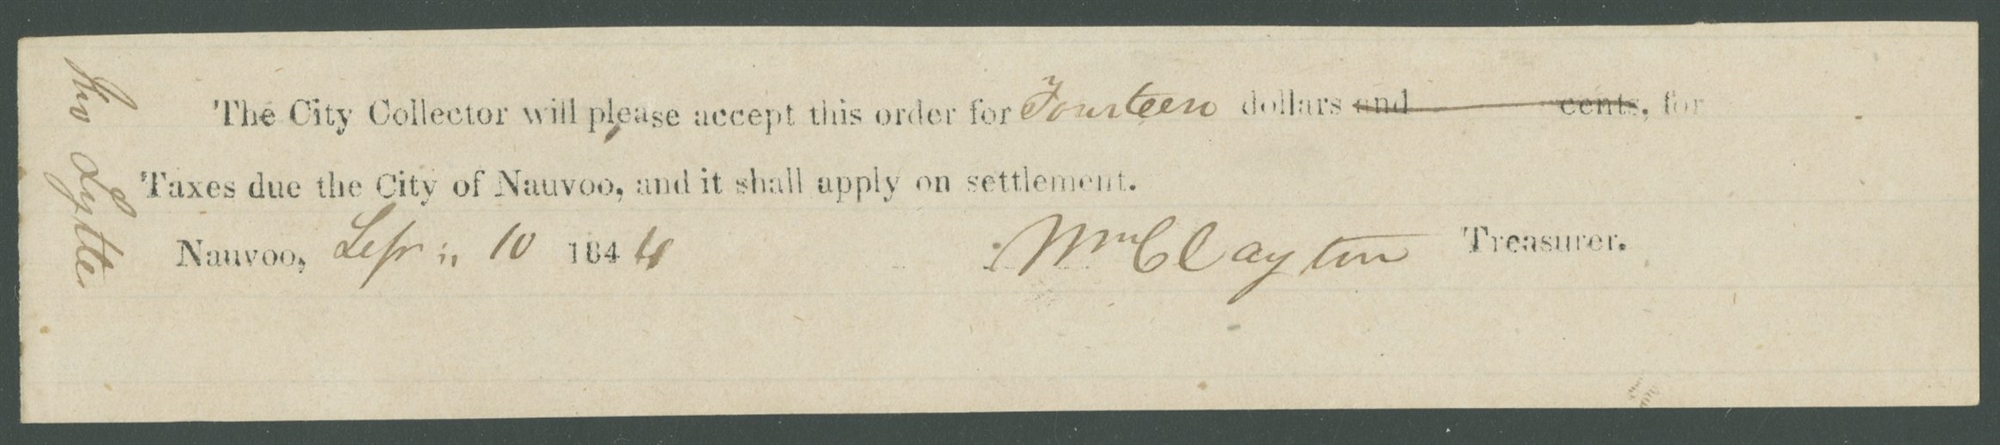 Jno Lytle
The City Collector will please accept this order for Fourteen dollars and cents, for
Taxes due the City of Nauvoo, and it shall apply on settlement.
Nauvoo, Sepr 10 1844 Wm Clayton Treasurer.